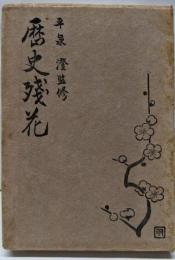 平泉 澄監修
歴史残花